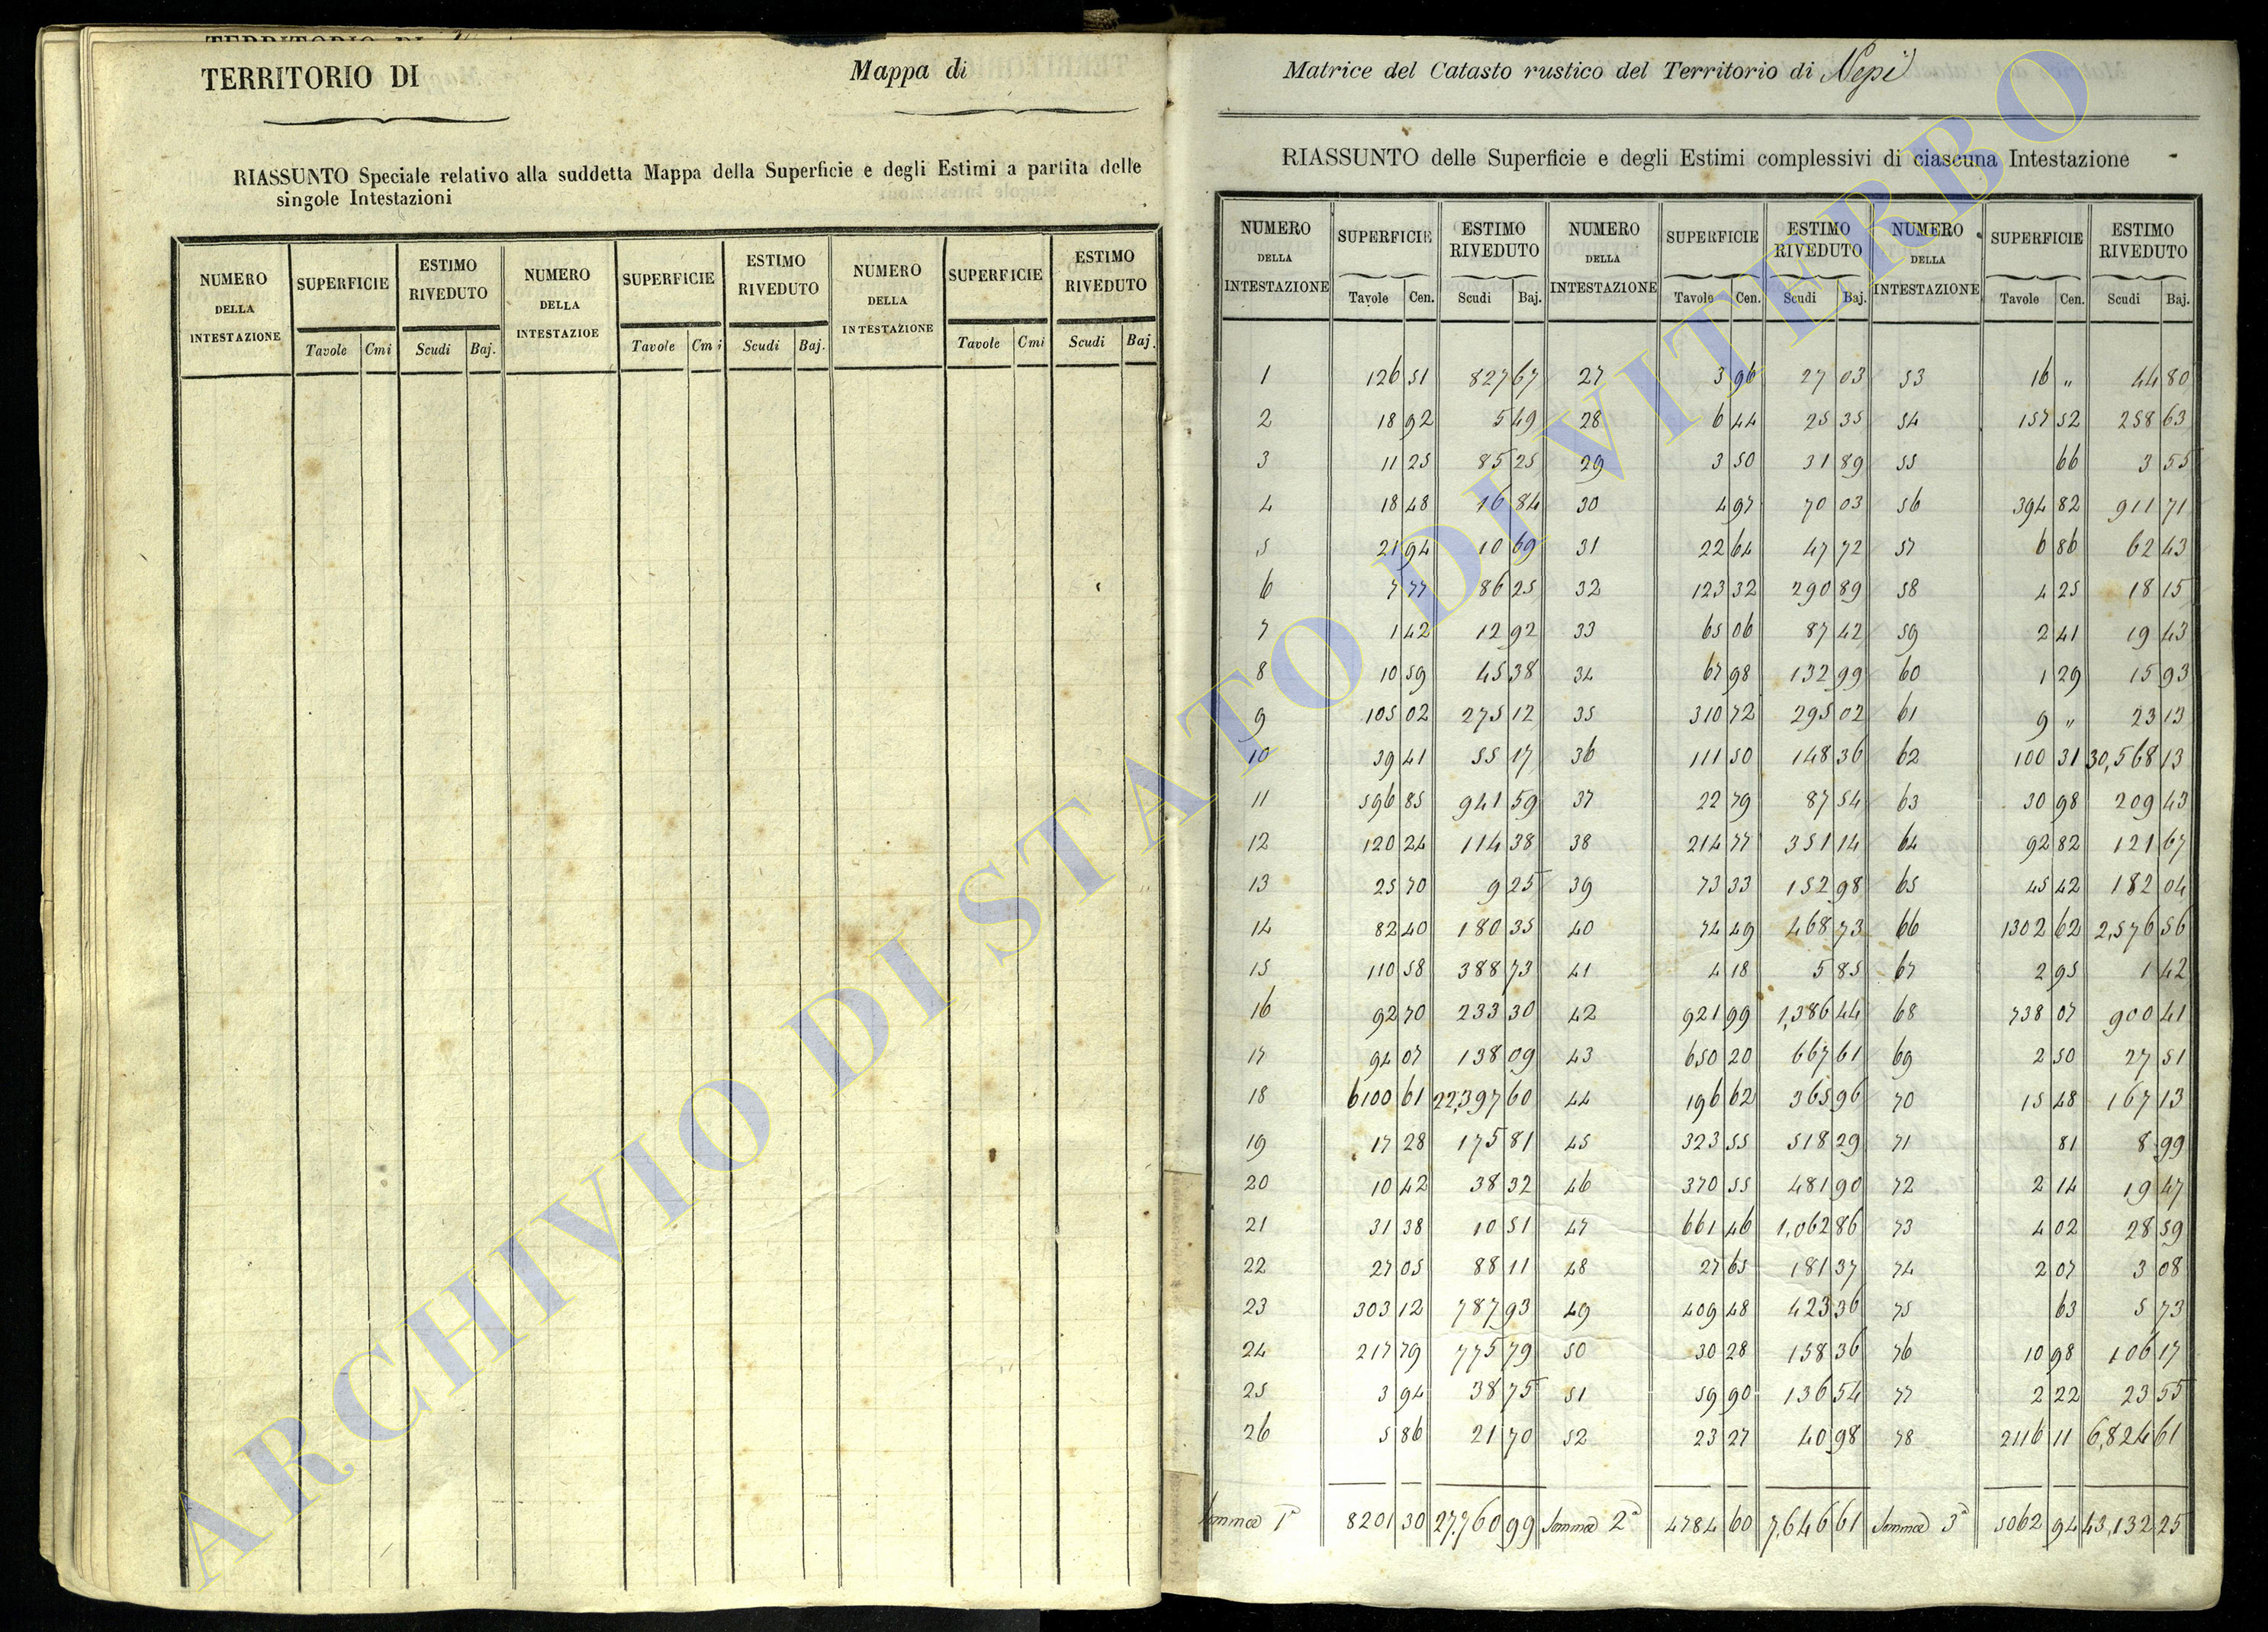 TERRITORIO DI
Mappa di
RIASSUNTO Speciale relativo alla suddetta Mappa della Superficie e degli Estimi a partita delle
singole Intestazioni
NUMERO DELLA INTESTAZIONE SUPERFICIE ESTIMO RIVEDUTO NUMERO DELLA INTESTAZIOE SUPERFICIE ESTIMO RIVEDUTO NUMERO DELLA INTESTAZIONE SUPERFICIE ESTIMO RIVEDUTO
Tavole Cmi Scudi Baj. Tavole Cmi Scudi Baj. Tavole Cmi Scudi Baj.
Matrice del Catasto rustico del Territorio di Nepi
RIASSUNTO delle Superficie e degli Estimi complessivi di ciascuna Intestazione
NUMERO DELLA INTESTAZIONE SUPERFICIE ESTIMO RIVEDUTO NUMERO DELLA INTESTAZIONE SUPERFICIE ESTIMO RIVEDUTO NUMERO DELLA INTESTAZIONE SUPERFICIE ESTIMO RIVEDUTO
Tavole Cen. Scudi Baj. Tavole Cen. Scudi Baj. Tavole Cen. Scudi Baj.
1 126 51 827 67 27 3 96 27 03 53 16 " 44 80
2 18 92 5 49 28 6 44 25 35 54 157 52 258 63
3 11 25 85 25 29 3 50 31 89 55 66 3 55
4 18 48 16 84 30 4 97 70 03 56 394 82 911 71
5 21 94 10 69 31 22 64 47 72 57 6 86 62 43
6 7 77 86 25 32 123 32 290 89 58 4 25 18 15
7 1 42 12 92 33 65 06 87 42 59 2 41 19 43
8 10 59 45 38 34 67 98 132 99 60 1 29 15 93
9 105 02 275 12 35 310 72 295 02 61 9 " 23 13
10 39 41 55 17 36 111 50 148 36 62 100 31 30,568 13
11 596 85 941 59 37 22 79 87 54 63 30 98 209 43
12 120 24 114 38 38 214 77 351 14 64 92 82 121 67
13 25 70 9 25 39 73 33 152 98 65 45 42 182 04
14 82 40 180 35 40 74 49 468 73 66 1302 62 2,576 56
15 110 58 388 73 41 4 18 5 85 67 2 95 1 42
16 92 70 233 30 42 921 99 1,386 44 68 738 07 900 41
17 94 07 138 09 43 650 20 667 61 69 2 50 27 51
18 6100 61 22,397 60 44 196 62 365 96 70 15 48 167 13
19 17 28 175 81 45 323 55 518 29 71 81 8 99
20 10 42 38 32 46 370 55 481 90 72 2 14 19 47
21 31 38 10 51 47 661 46 1,062 86 73 4 02 28 59
22 27 05 88 11 48 27 65 181 37 74 2 07 3 08
23 303 12 787 93 49 409 48 423 36 75 63 5 73
24 217 79 775 79 50 30 28 158 36 76 10 98 106 17
25 3 94 38 75 51 59 90 136 54 77 2 22 23 55
26 5 86 21 70 52 23 27 40 98 78 2116 11 6,824 61
Somma 1a 8201 30 27,760 99 Somma 2a 4784 60 7,646 61 Somma 3a 5062 94 43,132 25
ARCHIVIO DI STATO DI VITERBO